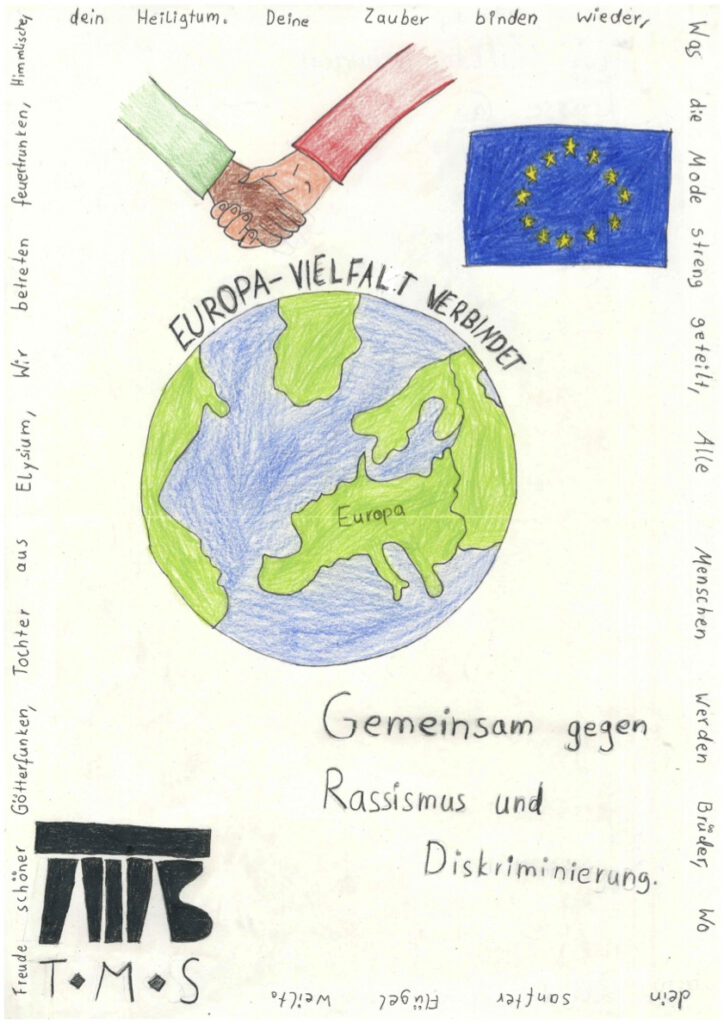 Freude schöner Götterfunken, Tochter aus Elysium, Wir betreten feuertrunken, Himmlische,
dein Heiligtum. Deine Zauber binden wieder,
Was die Mode streng geteilt, Alle Menschen werden Brüder, Wo
dein sanfter Flügel weilt.
EUROPA-VIELFALT VERBINDET
Europa
Gemeinsam gegen
Rassismus und
Diskriminierung.
T•M•S